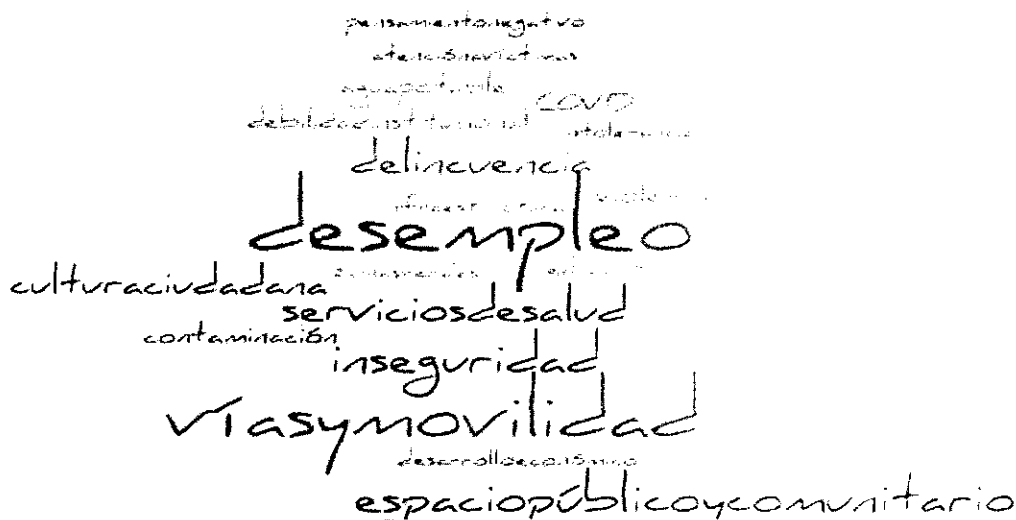 pensamientonegativo
atenciónavíctimas
aguapotable
COVID
debilidadinstitucional
intolerancia
delincuencia
violencia
desempleo
culturaciudadana
serviciosdesalud
contaminación
inseguridad
víasymovilidad
desarrolloeconómico
espaciopúblicoycomunitario